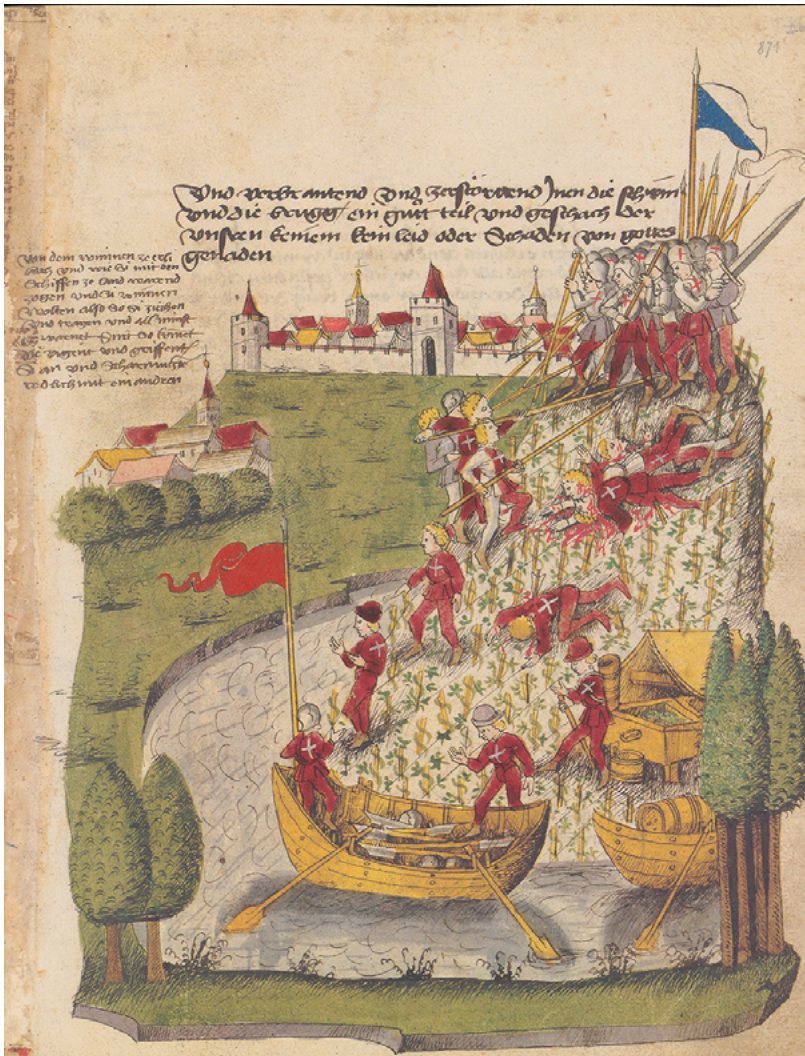 871
Vnd verbrantend vnd zerstörtend Jnen die schwin
vnd die brugg ein gůtt teil vnd geschach der
vnsren keinem kein leid oder Schaden von gottes
genaden
Von dem winnen ze erli
bach vnd wie Si mit den
Schiffen ze land
zogen vnd Si winnen
wolten also So Si ziechen
vnd tragen vnd all
gewarnet Sint So komet
die vigent vnd griffent
Si an vnd Scharmutzt
redlich mit ein andren